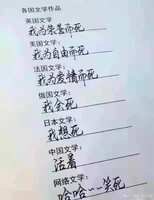 各国文学作品
英国文学
我为荣誉而死
美国文学:
我为自由而死
法国文学:
我为爱情而死
俄国文学:
我会死
日本文学:
我想死
中国文学:
活着
网络文学:
哈哈……笑死